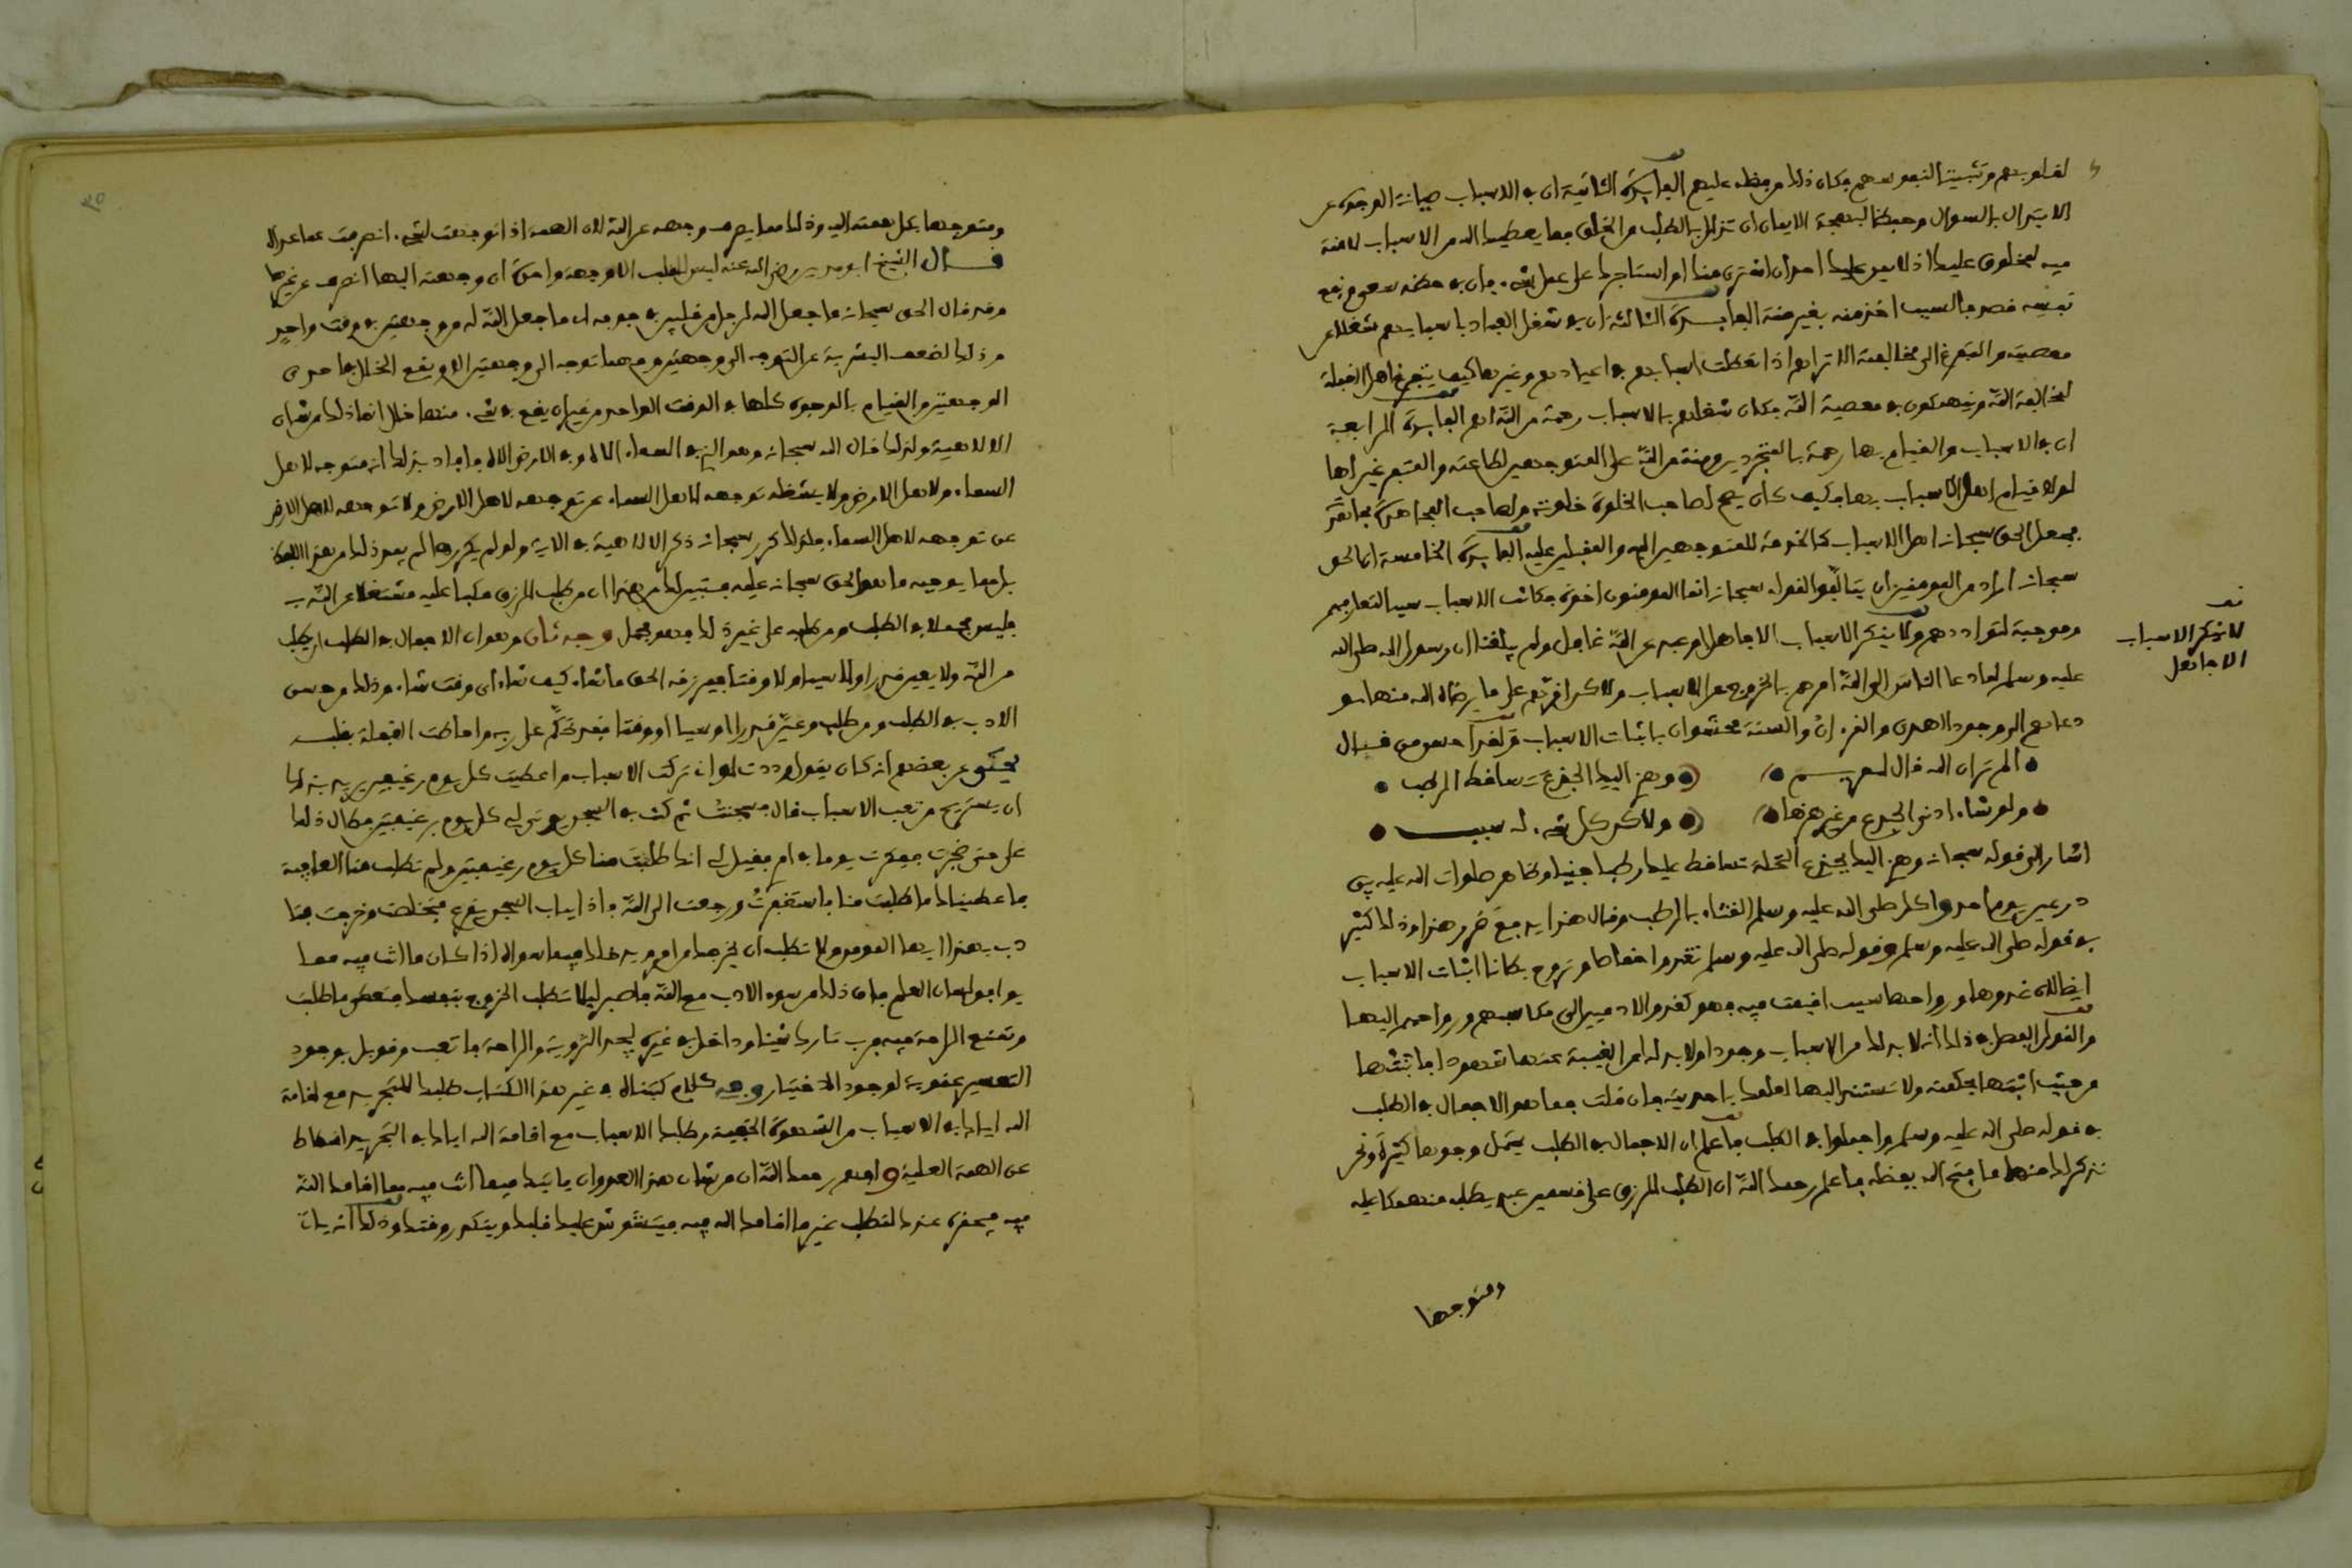 لقلوبهم وتثبيتا لنفوسهم فكان ذلك من فضله عليهم الفايدة الثانية ان في الاسباب صيانة الوجوه عن
الابتذال بالسوال وحفظا لبهجة الايمان ان تزول بالطلب من الخلق فما يعطيك الله من الاسباب لا منة
فيه لمخلوق عليك اذ لا يمن عليك احد ان اشترى منك او استاجرك على عمل شيء فانه في حظه سعى ونفع
نفسه قصد فالسبب اخذ منه بغير منة الفايدة الثالثة ان في شغل العباد باسبابهم شغلا عن
معصيته والتفرغ الى مخالفته الا تراهم اذا تعطلت اسبابهم في اعيادهم وغيرها كيف يتفرغ اهل الغفلة
لمخالفة الله وينهمكون في معصية الله فكان شغلهم بالاسباب رحمة من الله لهم الفايدة الرابعة
ان في الاسباب والقيام بها رحمة بالمتجردين ومنة من الله على المتوجهين لطاعته والمتفرغين لها
لولا قيام اهل الاسباب بها فكيف كان يصح لصاحب الخلوة خلوته ولصاحب المجاهدة مجاهدته
فجعل الحق سبحانه اهل الاسباب كالخدمة للمتوجهين اليه والمقبلين عليه الفايدة الخامسة ان الحق
سبحانه اراد من المومنين ان يتالفوا لقوله سبحانه انما المومنون اخوة فكانت الاسباب سببا لتعارفهم
وموجبة لتواددهم ولا ينكر الاسباب الا جاهل او عبد عن الله غافل ولم يبلغنا ان رسول الله صلى الله
عليه وسلم لما دعا الناس الى الله امرهم بالخروج عن الاسباب ولاكن اقرهم على ما يرضاه الله منها و
دعاهم الى وجود الهدى والقرءان والسنة محشوان باثبات الاسباب ولقد احسن من قال
الم تر ان الله قال لمريم وهزي اليك الجذع تساقط الرطب
ولو شاء ادنى الجذع من غير هزها ولاكن كل شيء له سبب
اشار الى قوله سبحانه وهزي اليك بجذع النخلة تساقط عليك رطبا جنيا وظاهر صلوات الله عليه بين
درعين يوم احد واكل صلى الله عليه وسلم القثاء بالرطب وقال هذا يدفع ضرر هذا وذلك كثير
في قوله صلى الله عليه وسلم وقوله صلى الله عليه وسلم تغدوا خماصا وتروح بطانا اثبات الاسباب
ايضا لان غدوها ورواحها سبب اقيمت فيه فهو كغدو الادميين الى مكاسبهم ورواحهم اليها
والقول الفصل في ذلك انه لا بد لك من الاسباب وجودا ولا بد لك من الغيبة عنها شهودا فاثبتها
من حيث اثبتها بحكمته ولا تستند اليها لعلمك باحديته فان قلت فما هو الاجمال في الطلب
في قوله صلى الله عليه وسلم واجملوا في الطلب فاعلم ان الاجمال في الطلب يحتمل وجوها كثيرة ونحن
نذكر لك منها ما فتح الله بفضله فاعلم رحمك الله ان الطلب للرزق على قسمين عبد يطلبه منهمكا عليه
ومتوجها
لا ينكر الاسباب
الا جاهل
ومتوجها بكل همته اليه وذلك مما يصرف وجهه عن الله لان الهمة اذا توجهت لشيء انصرفت عما عداه
قال الشيخ ابو مدين رضي الله عنه ليس للقلب الا وجهة واحدة ان وجهته اليها انصرف عن غيرها
وقد قال الحق سبحانه ما جعل الله لرجل من قلبين في جوفه اي ما جعل الله له من وجهتين في وقت واحد
وذلك لضعف البشرية عن التوجه الى وجهتين ومهما توجه الى وجهتين الا ويقع الخلل في احدى
الوجهتين والقيام بالوجوه كلها في الوقت الواحد من غير ان يقع في شيء منها خلل انما ذلك من شان
الالاهية ولذلك قال الله سبحانه وهو الذي في السماء الاه وفي الارض الاه فافاد بذلك انه متوجه لاهل
السماء ولاهل الارض ولا يشغله توجهه لاهل السماء عن توجهه لاهل الارض ولا توجهه لاهل الارض
عن توجهه لاهل السماء فلذلك كرر سبحانه ذكر الالاهية في الاية ولو لم يكررها لم يفد ذلك من هذا اللفظ
بل مما يوجبه ما هو الحق سبحانه عليه فتبين لك من هذا ان من طلب الرزق مكبا عليه مشتغلا عن الله به
فليس مجملا في الطلب ومن طلبه على غير ذلك فهو مجمل وجه ثان وهو ان الاجمال في الطلب ان يطلب
من الله ولا يعين قدرا ولا سببا ولا وقتا فيرزقه الحق ما شاء كيف شاء اي وقت شاء وذلك من حسن
الادب في الطلب ومن طلب وعين قدرا او سببا او وقتا فقد تحكم على ربه واحاطت الغفلة بقلبه
يحكى عن بعضهم انه كان يقول وددت لو اني تركت الاسباب واعطيت كل يوم رغيفين يريد بذلك
ان يستريح من تعب الاسباب قال فسجنت ثم كنت في السجن يوتى لي كل يوم برغيفين فطال ذلك
علي حتى ضجرت ففكرت يوما في امري فقيل لي انك طلبت منا كل يوم رغيفين ولم تطلب منا العافية
فاعطيناك ما طلبت منا فاستغفرت ورجعت الى الله فاذا بباب السجن يقرع فتخلصت وخرجت فتا
دب بهذا ايها المومن ولا تطلب ان يخرجك من امر ويدخلك فيما سواه اذا كان ما انت فيه مما
يوافق لسان العلم فان ذلك من سوء الادب مع الله فاصبر ليلا تطلب الخروج بنفسك فتعطى ما طلبت
وتمنع الراحة فيه فرب تارك شيئا وداخل في غيره ليجد الثروة والراحة فاتعب وقوبل بوجود
التعسير عقوبة لوجود الاختيار وجه كلام كتبناه في غير هذا الكتاب طلبك للتجريد مع اقامة
الله اياك في الاسباب من الشهوة الخفية وطلبك الاسباب مع اقامة الله اياك في التجريد انحطاط
عن الهمة العلية وافهم رحمك الله ان من شان هذا العدو ان ياتيك فيما انت فيه مما اقامك الله
فيه فيحقره عندك لتطلب غير ما اقامك الله فيه فيتشوش عليك قلبك ويتكدر وقتك وذلك انه يات